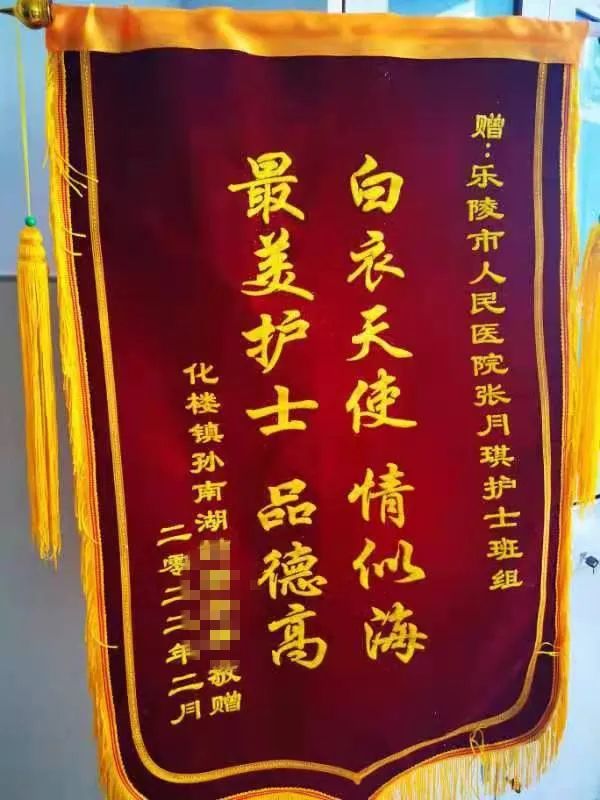 赠：乐陵市人民医院张月琪护士班组
白衣天使 情似海
最美护士 品德高
化楼镇孙南湖敬赠
二零二二年二月